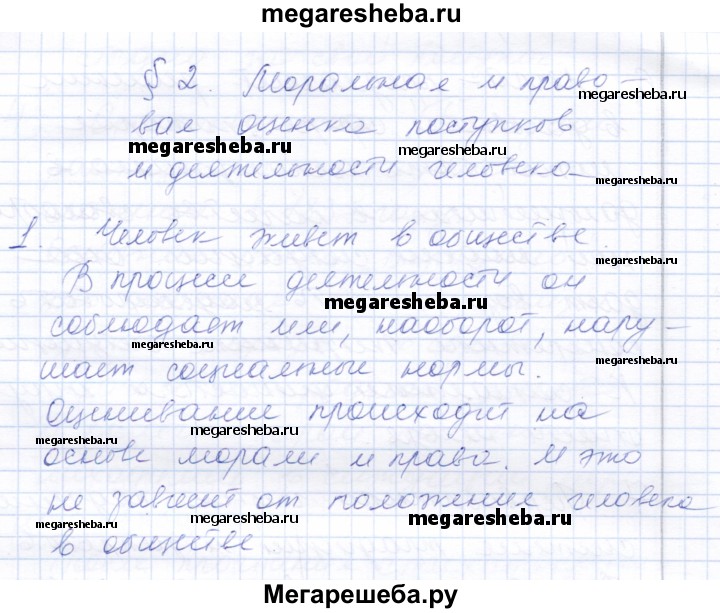 megaresheba.ru
§ 2. Моральная и право-
megaresheba.ru
вая оценка поступков
megaresheba.ru
megaresheba.ru
и деятельности человека
megaresheba.ru
1. Человек живет в обществе.
megaresheba.ru
В процессе деятельности он
megaresheba.ru
соблюдает или, наоборот, нару-
megaresheba.ru
megaresheba.ru
шает социальные нормы.
Оценивание происходит на
megaresheba.ru
megaresheba.ru
основе морали и права. И это
не зависит от положения человека
megaresheba.ru
megaresheba.ru
megaresheba.ru
в обществе
Мегарешеба.ру